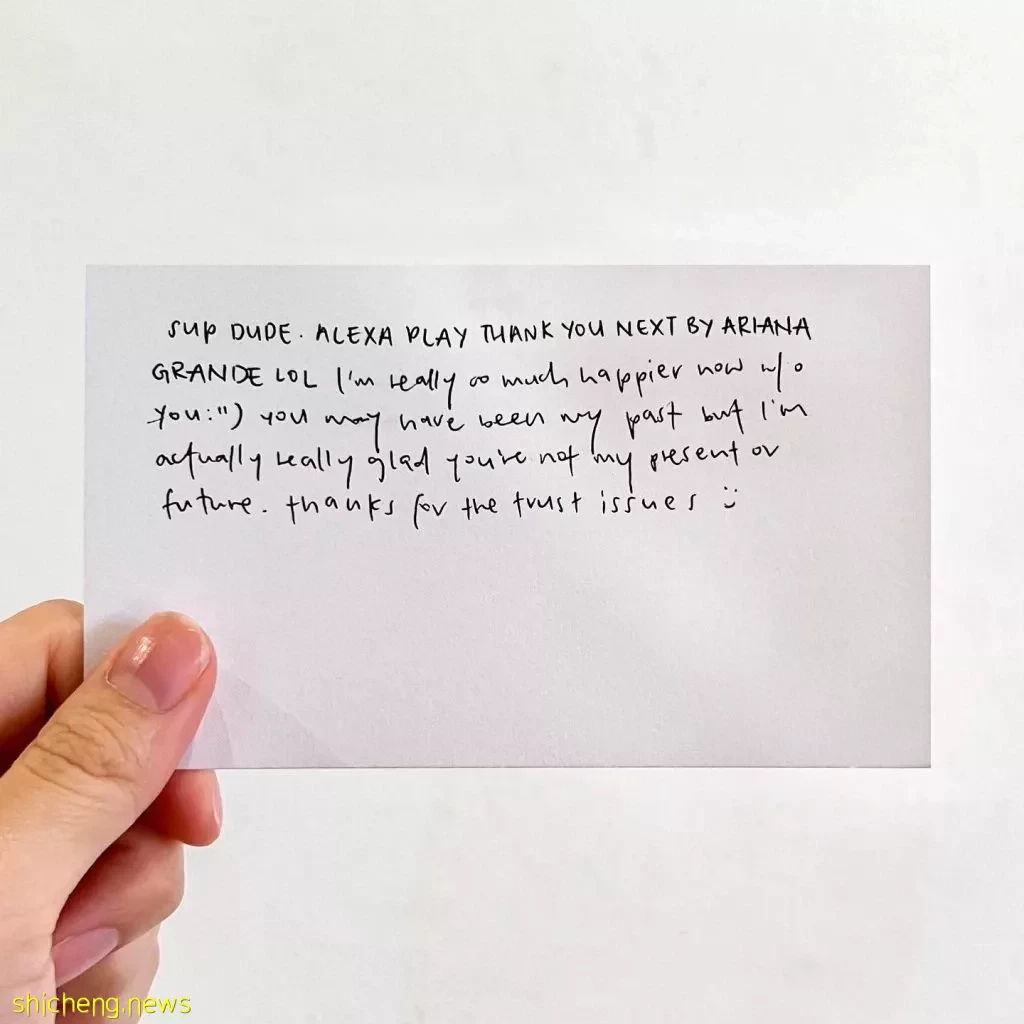 SUP DUDE. ALEXA PLAY THANK YOU NEXT BY ARIANA
GRANDE LOL I'm really so much happier now w/o
you:") you may have been my past but I'm
actually really glad you're not my present or
future. thanks for the trust issues :)
shicheng.news